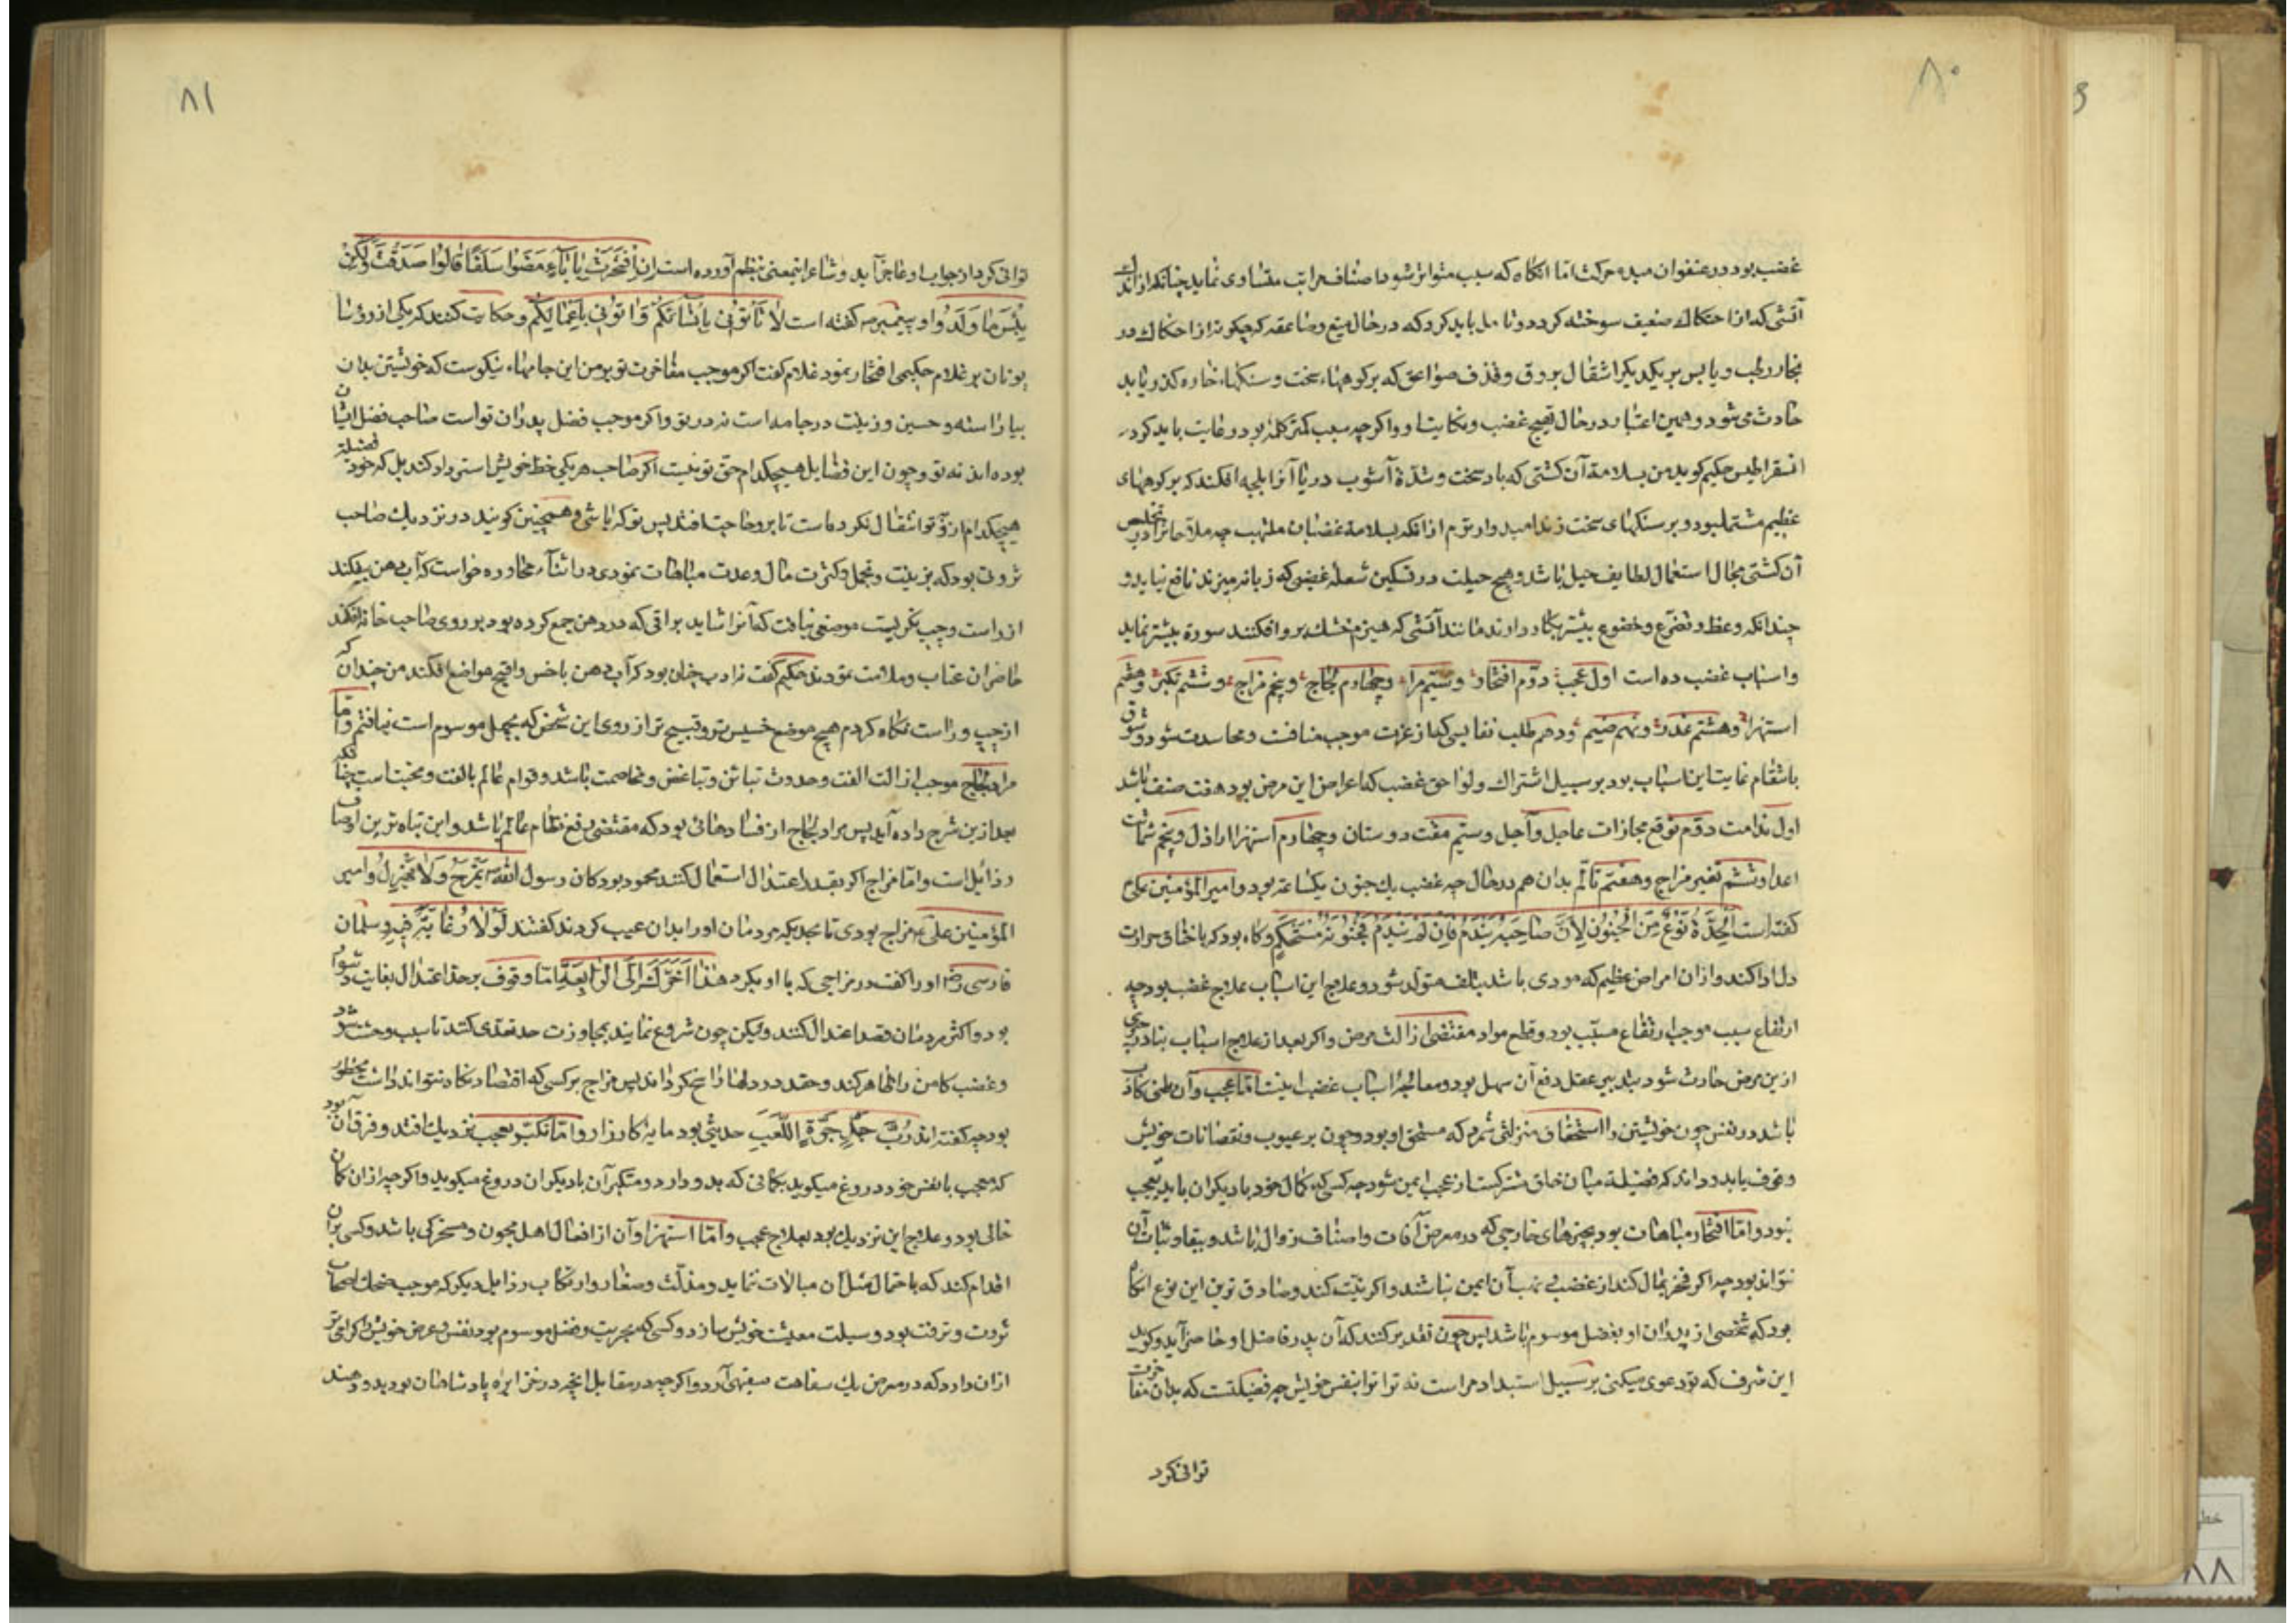 ۸۰
غضب بود در عنفوان مبدء حرکت اما انگاه که سبب متواتر شود اصناف مراتب متساوی نماید چنانکه از اندك
آتشی که از احتکاك ضعیف سوخته کردد و تامل باید کرد که در حال میغ و صاعقه که چکونه از احتکاك در
بخار رطب و یابس بر یکدیکر اشتعال بروق و قذف صواعق که بر کوهها سخت و سنکهاء خاره کذر یابد
حادث می شود و همین اعتبار در حال تهییج غضب و نکایت او و اکر چه سبب کمتر کلمه بود رعایت باید کرد
انسقراطیس حکیم کوید من بسلامة آن کشتی که باد سخت و شدة آشوب دریا آنرا بلجه افکند که بر کوههای
عظیم مشتمل بود و بر سنکهای سخت زند امیدوار ترم از انکه بسلامة غضبان ملتهب چه ملاحانرا در تخلیص
آن کشتی مجال استعمال لطایف حیل باشد و هیچ حیلت در تسکین شعله غضبی که زبانه میزند نافع نیاید و
چندانکه وعظ و تضرع و خضوع بیشتر بکار دارند مانند آتشی که هیزم خشك بر و افکنند سورة بیشتر نماید
و اسباب غضب ده است اول عجب دوم افتخار و سیم مرا و چهارم لجاج و پنجم مزاج و ششم تکبر و هفتم
استهزا و هشتم غدر و نهم ضیم و دهم طلب نفایسی که از عزت موجب منافست و محاسدت شود و شوق
بانتقام غایت این اسباب بود بر سبیل اشتراك و لواحق غضب که اعراض این مرض بود هفت صنف باشد
اول ندامت دوم توقع مجازات عاجل و آجل و سیم مقت دوستان و چهارم استهزا اراذل و پنجم شماتت
اعدا و ششم تغیر مزاج و هفتم تالم بدان هم در حال چه غضب یك جنون یکساعته بود و امیر المؤمنین علی
کفته است اَلْحِدَّةُ نَوْعٌ مِنَ الْجُنُونِ لِاَنَّ صٰاحِبَهٰا یَنْدَمُ فَاِنْ لَمْ یَنْدَمْ فَجُنُونُهُ مُسْتَحْکَمٌ و کاه بود که باختناق حرارت
دل ادا کند و ازان امراض عظیم که مودی باشد بتلف متولد شود و علاج این اسباب علاج غضب بود چه
ارتفاع سبب موجب ارتفاع مسبب بود و قطع مواد مقتضی ازالت مرض و اکر بعد از علاج اسباب بنادر چیزی
ازین مرض حادث شود بتدبیر عقل دفع آن سهل بود و معالجۀ اسباب غضب اینست اما عجب و آن ظنی کاذب
باشد در نفس چون خویشتن را استحقاق منزلتی شمرد که مستحق او بود و چون بر عیوب و نقصانات خویش
وقوف یابد و داند که فضیلة میان خلق مشترکست از عجب ایمن شود چه کسی که کمال خود با دیکران یابد معجب
نبود و اما افتخار مباهات بود بچیزهای خارجی که در معرض آفات و اصناف زوال باشد و ببقا و ثبات آن
نتواند بود چه اکر فخر بمال کند از غضب و نهب آن ایمن نباشند و اکر بنسبت کند و صادق ترین این نوع انکاه
بود که شخصی از پدران او بفضل موسوم باشد پس چون تقدیر کنند که آن پدر فاضل او حاضر آید و کوید
این شرف که تو دعوی میکنی بر سبیل استبداد مراست نه ترا تو بنفس خویش چه فضیلتست که بدان مفاخرت
توانی کرد
۸۱
توانی کرد از جواب او عاجز آید و شاعر اینمعنی بنظم آورده است اِنِ افْتَخَرْتَ بِاٰبٰاءٍ مَضَوْا سَلَفًا قٰالُوا صَدَقْتَ وَلٰکِنْ
بِئْسَ مٰا وَلَدُوا و پیغمبر ص کفته است لٰا تَأْتُونِی بِاَنْسٰابِکُمْ وَأْتُونِی بِاَعْمٰالِکُمْ و حکایت کنند که یکی از رؤسا
یونان بر غلام حکیمی افتخار نمود غلام کفت اکر موجب مفاخرت تو بر من این جامهاء نیکوست که خویشتن بدان
بیاراسته و حسین و زینت در جامه است نه در تو و اکر موجب فضل پدران تو است صاحب فضل ایشان
بوده اند نه تو و چون این فضایل هیچکدام حق تو نیست اکر صاحب هر یکی حظ خویش استرداد کند بل که خود فضیلة
هیچکدام از و بتو انتقال نکرده است تا برو حاجت افتد پس تو که باشی و همچنین کویند در نزدیك صاحب
ثروتی بود که بزینت و تجمل و کثرت مال و عدت مباهات نمودی در اثناء محاوره خواست که آب دهن بیفکند
از راست و چپ بنکریست موضعی نیافت که آنرا شاید بزاقی که در دهن جمع کرده بود بر روی صاحب خانه افکند
حاضران عتاب و ملامت نمودند حکیم کفت نه ادب چنان بود که آب دهن باخس و اقبح مواضع افکند من چندان که
از چپ و راست نکاه کردم هیچ موضع خسیس تر و قبیح تر از روی این شخص که بجهل موسوم است نیافتم و اما
مرا و لجاج موجب ازالت الفت و حدوث تباین و تباغض و مخاصمت باشد و قوام عالم بالفت و محبت است چنانکه
بعد ازین شرح داده آید پس مرا و لجاج از فسادهائی بود که مقتضی رفع نظام عالم باشد و این تباه ترین اوصاف
رذائل است و اما مزاح اکر بقدر اعتدال استعمال کنند محمود بود کان رسول الله ص یَمْزَحُ وَلٰا یَهْزِلُ و امیر
المؤمنین علی ع مزاح بودی تا بحدیکه مردمان او را بدان عیب کردند کفتند لَوْلٰا دُعٰابَةٌ فِیهِ و سلمان
فارسی رض او را کفت در مزاحی که با او بکرد هٰذٰا اَخَّرَكَ اِلَی الرّٰابِعَةِ اما وقوف بر حد اعتدال بغایت دشوار
بود و اکثر مردمان قصد اعتدال کنند ولیکن چون شروع نمایند بمجاوزت حد تعدی کنند تا سبب وحشت شود
و غضب کامن را ظاهر کند و حقد در دلها راسخ کرداند پس مزاح بر کسی که اقتصاد نکاه نتواند داشت محظور بود
بود چه کفته اند رُبَّ جِدٍّ جَرَّهُ اللَّعِبُ حدیثی بود مایه کارزار و اما تکبر بعجب نزدیك افتد و فرق آن
که معجب با نفس خود دروغ میکوید بکمانی که بدو دارد و متکبر آن با دیکران دروغ میکوید و اکر چه ازان کمان
خالی بود و علاج این نزدیك بود بعلاج عجب و اما استهزا و آن از افعال اهل مجون و مسخرکی باشد و کسی بران
اقدام کند که باحتمال مثل آن مبالات نماید و مذلت و صغار و ارتکاب رذایل دیکر که موجب ضحك اصحاب
ثروت و ترفت بود وسیلت معیشت خویش سازد و کسی که بحریت و فضل موسوم بود نفس و عرض خویش را کرامی تر
ازان دارد که در معرض یك سفاهت سفیهی آرد و اکر چه در مقابل آنچه در خزاین پادشاهان بود بدو دهند